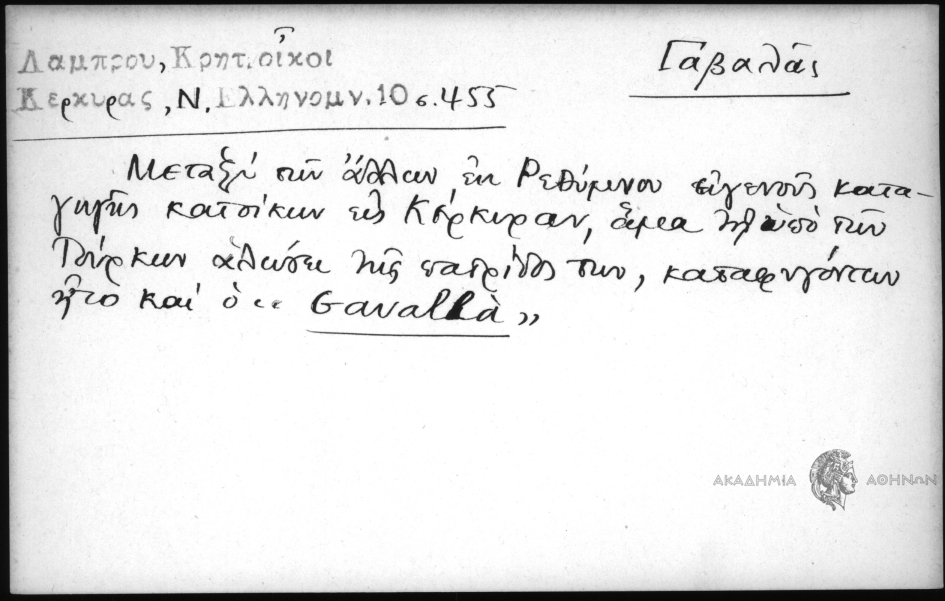 Λαμπρου, Κρητ. οἶκοι
Κερκυρας, Ν. Ελληνομν. 10 σ. 455
Γαβαλᾶς
Μεταξύ τῶν ἄλλων ἐκ Ρεθύμνου εὐγενοῦς κατα-
γωγῆς κατοίκων εἰς Κέρκυραν, ἅμα τῇ ὑπό τῶν
Τούρκων ἁλώσει τῆς πατρίδος των, καταφυγόντων
ἦτο καί ὁ « Gavallà »
ΑΚΑΔΗΜΙΑ ΑΘΗΝΩΝ